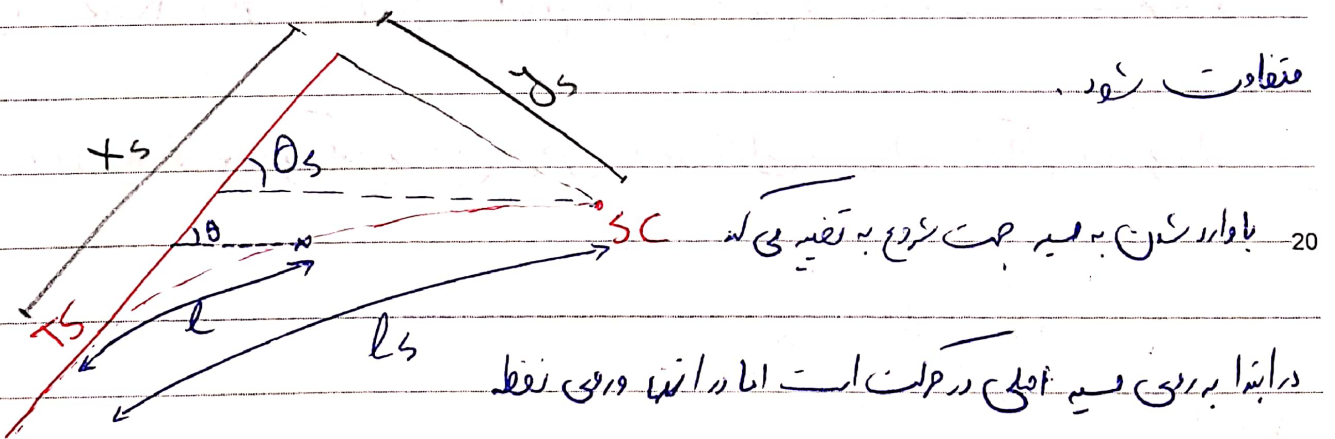 متفاوت شود.
xs
ys
θs
θ
SC
با وارد شدن به مسیر جهت شروع به تغییر می کند
20
TS
l
ls
در ابتدا به روی مسیر اصلی در حرکت است اما در انتها روی نقطه